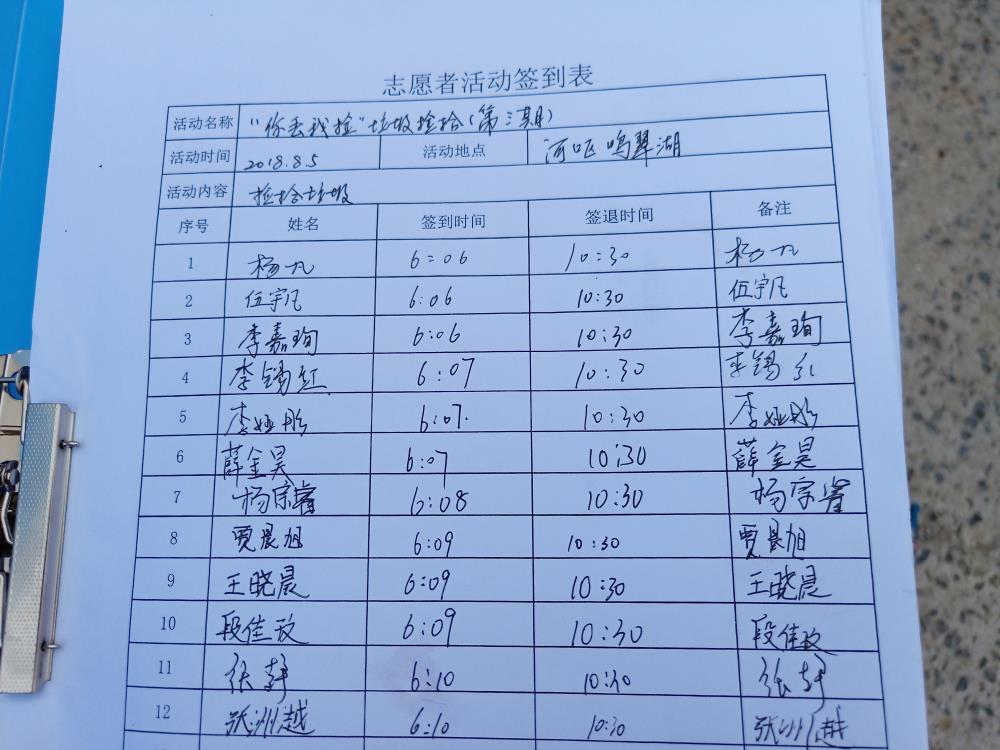 志愿者活动签到表
活动名称 "你丢我捡"垃圾捡拾(第三期)
活动时间 2018.8.5 活动地点 河 鸣翠湖
活动内容 捡拾垃圾
序号 姓名 签到时间 签退时间 备注
1 杨九 6:06 10:30 杨九
2 伍宇凡 6:06 10:30 伍宇凡
3 李嘉珣 6:06 10:30 李嘉珣
4 李锡红 6:07 10:30 李锡红
5 李娅彤 6:07. 10:30 李娅彤
6 薛金昊 6:07 10:30 薛金昊
7 杨宗睿 6:08 10:30 杨宗睿
8 贾晨旭 6:09 10:30 贾晨旭
9 王晓晨 6:09 10:30 王晓晨
10 段佳玫 6:09 10:30 段佳玫
11 张 6:10 10:30 张
12 张洲越 6:10 10:30 张洲越